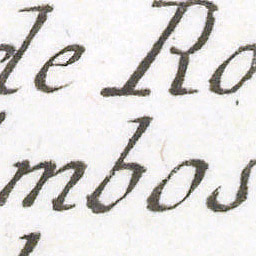 de Ro
mbos